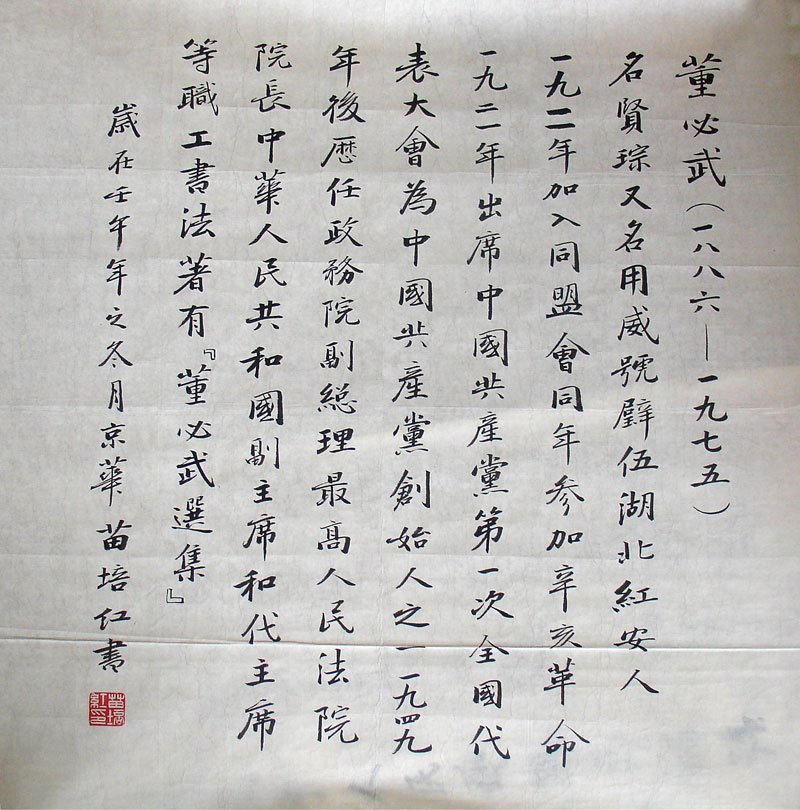 董必武（一八八六—一九七五）
名賢琮又名用威號璧伍湖北紅安人
一九一一年加入同盟會同年參加辛亥革命
一九二一年出席中國共產黨第一次全國代
表大會為中國共產黨創始人之一一九四九
年後歷任政務院副總理最高人民法院
院長中華人民共和國副主席和代主席
等職工書法著有『董必武選集』
歲在壬午年之冬月京華苗培红書
苗培紅印